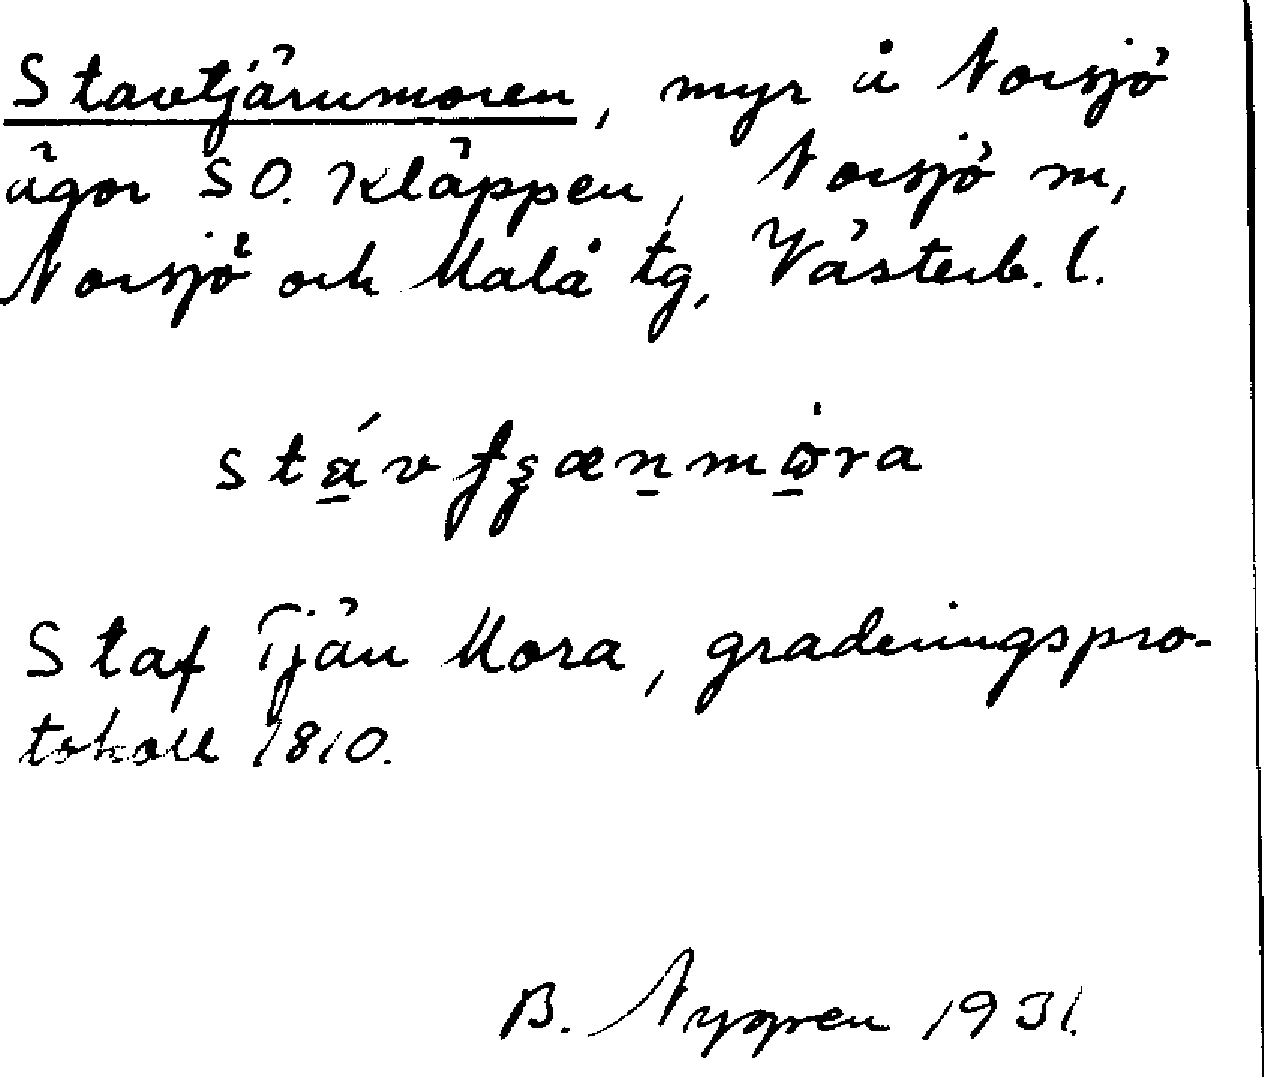 Stavtjärnmoren, myr å Norsjö
ägor SO. Kläppen, Norsjö sn,
Norsjö och Malå tg, Västerb. l.
Staf Tjän Mora, graderingspro-
tokoll 1810.
B. Nygren 1931.